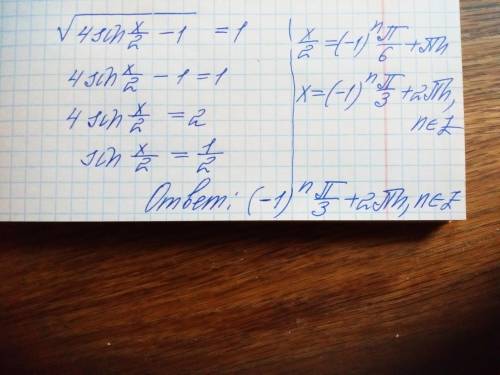 √(4sin x/2 − 1) = 1
4sin x/2 − 1 = 1
4sin x/2 = 2
sin x/2 = 1/2
x/2 = (-1)^n π/6 + πn
x = (-1)^n π/3 + 2πn,
n∈Z
Ответ: (-1)^n π/3 + 2πn, n∈Z